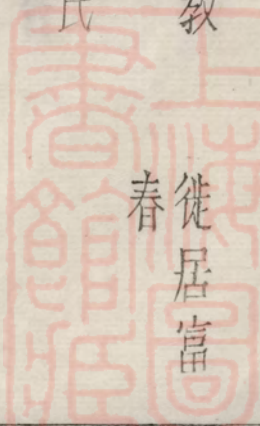 教
徙居富
春
氏
上海圖
書館藏